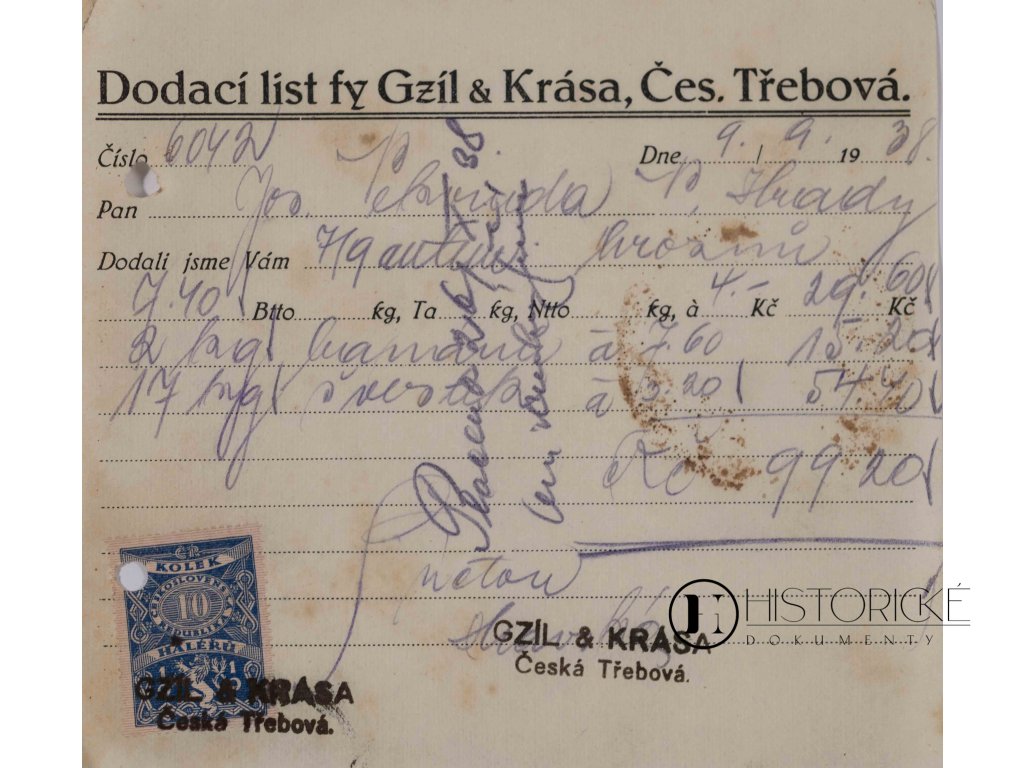 Dodací list fy Gzíl & Krása, Čes. Třebová.
Číslo 6042 Dne 9. / 9. 19 38.
Pan Jos. P. Hrady
Dodali jsme Vám hroznů
7.40 Btto kg, Ta kg, Ntto kg, á 4.- Kč 29.60 Kč
2 kg banánů á 7.60 15.20
17 kg švestek á 3.20 54.40
Kč 99.20
Placeno 38
ČR
KOLEK
ČESKOSLOVENSKÁ
REPUBLIKA
10
HALÉŘŮ
GZÍL & KRÁSA
Česká Třebová.
GZÍL & KRÁSA
Česká Třebová.
HISTORICKÉ
DOKUMENTY